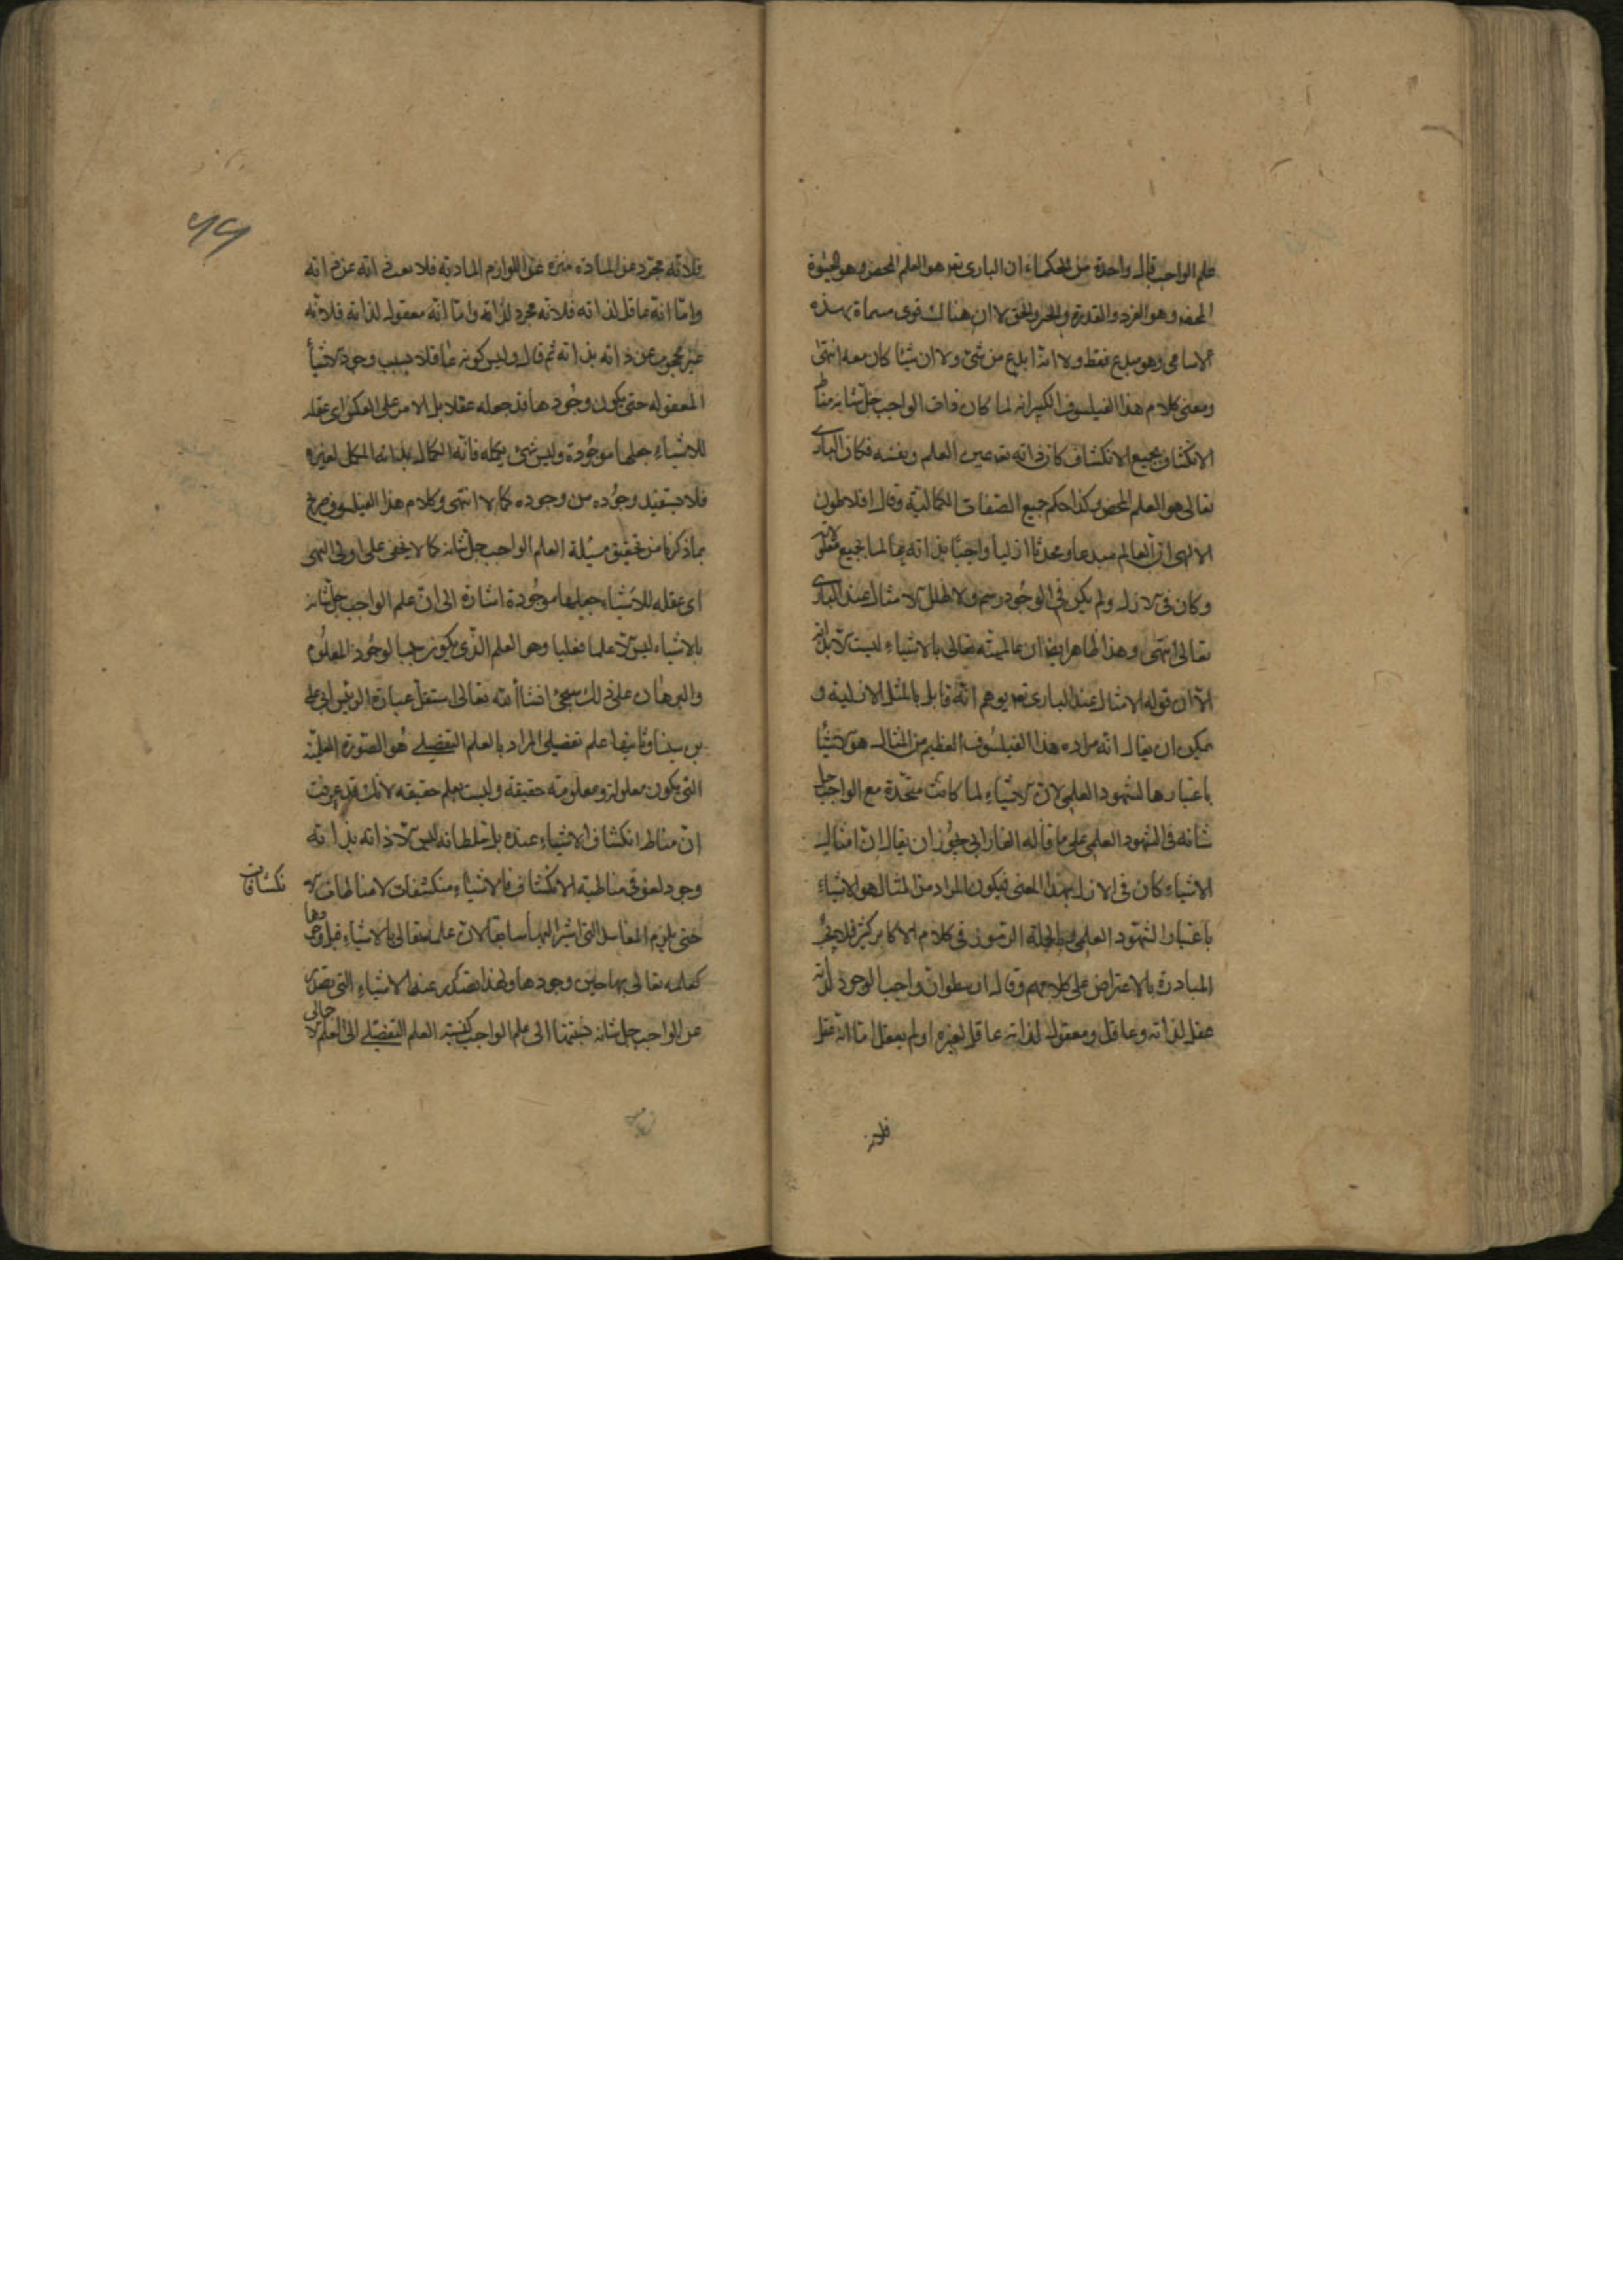 علم الواجب قال واحدة من الحكماء ان البارى تعه هو العلم المحض وهو الحيٰوة
المحضه وهو العزد والقدرة والخير والحق لا ان هناك قوى مسماة بهذه
الاسامى وهو مبدع فقط ولا انه ابدع من شئ ولا ان شيئا كان معه انتهى
ومعنى كلام هذا الفيلسوف الكبير انه لما كان ذات الواجب جل شانه مناط
الانكشاف بجميع الانكشاف كان ذاته تعه عين العلم ونفسه فكان البارى
تعالى هو العلم المحض وكذا حكم جميع الصفات الكمالية وقال افلاطون
الالهى ان للعالم مبدعا ومحدثا ازليا واجبا بذاته عالما بجميع معلولاته
وكان فى الازل ولم يكن فى الوجود رسم ولا طلل الا مثال عند البارى
تعالى انتهى وهذا ظاهر ايضا ان عالميته تعالى بالاشياء ليست الا بذاته
الا ان قوله الا مثال عند البارى تعه يوهم انه قابل بالمثل الازلية و
يمكن ان يقال انه مراد هذا الفيلسوف العظيم من المثال هو الاشياء
باعتبارها الشهود العلمى لان الاشياء لما كانت متحدة مع الواجب جل
شانه فى الشهود العلمى على ما قاله الفارابى يجوز ان يقال ان امثال
الاشياء كان فى الازل بهذا المعنى فيكون المراد من المثال هو الاشياء
باعتبار الشهود العلمى وبالجملة الرموز فى كلام الاكابر كثير فلا يجوز
المبادرة بالاعتراض على كلامهم وقال ارسطو ان واجب الوجود لذاته
عقل لذاته وعاقل ومعقول لذاته عاقل لغيره او لم يعقل اما انه عقل
فلانه
فلانه مجرد عن المادة منزه عن اللوازم المادية فلا يعزب ذاته عن ذاته
واما انه عاقل لذاته فلانه مجرد لذاته واما انه معقول لذاته فلانه
غير محجوب عن ذاته بذاته ثم قال وليس كونه عاقلا بسبب وجود الاشياء
المعقوله حتى يكون وجودها قد جعله عقلا بل الامر على العكس اى عقله
للاشياء جعلها موجودة وليس شئ يكمله فانه الكمال بذاته المكمل لغيره
فلا يستفيد وجوده من وجوده كمالا انتهى وكلام هذا الفيلسوف صريح
بما ذكرنا من تحقيق مسئلة العلم الواجب جل شانه كما لا يخفى على اولى النهى
اى عقله للاشياء جعلها موجودة اشارة الى ان علم الواجب جل شانه
بالاشياء ليس الا علما فعليا وهو العلم الذى يكون سببا لوجود المعلوم
والبرهان على ذلك سيجئ انشاأ الله تعالى استقل عبارة الرئيس ابى على
بن سينا وثانيها علم تفصيلى المراد بالعلم التفصيلى هو الصورة العلمية
التى يكون معلولة ومعلومة حقيقة وليست بعلم حقيقه لانك قد عرفت
ان مناط انكشاف الاشياء عنده بل سلطانه ليس الا ذاته بذاته
وجود لغوى مناطية الانكشاف فالاشياء منكشفات لا مناطات الا
نكشافات
حتى يلزم المفاسد التى اشرنا اليها سابقا لان علمه تعالى بالاشياء قبل وجودها
كعلمه تعالى بها حين وجودها ولهذا يصدر عنه الاشياء التى يصدر
عن الواجب جل شانه فنسبتها الى علم الواجب كنسبة العلم التفصيلى الى العلم الاجمالى